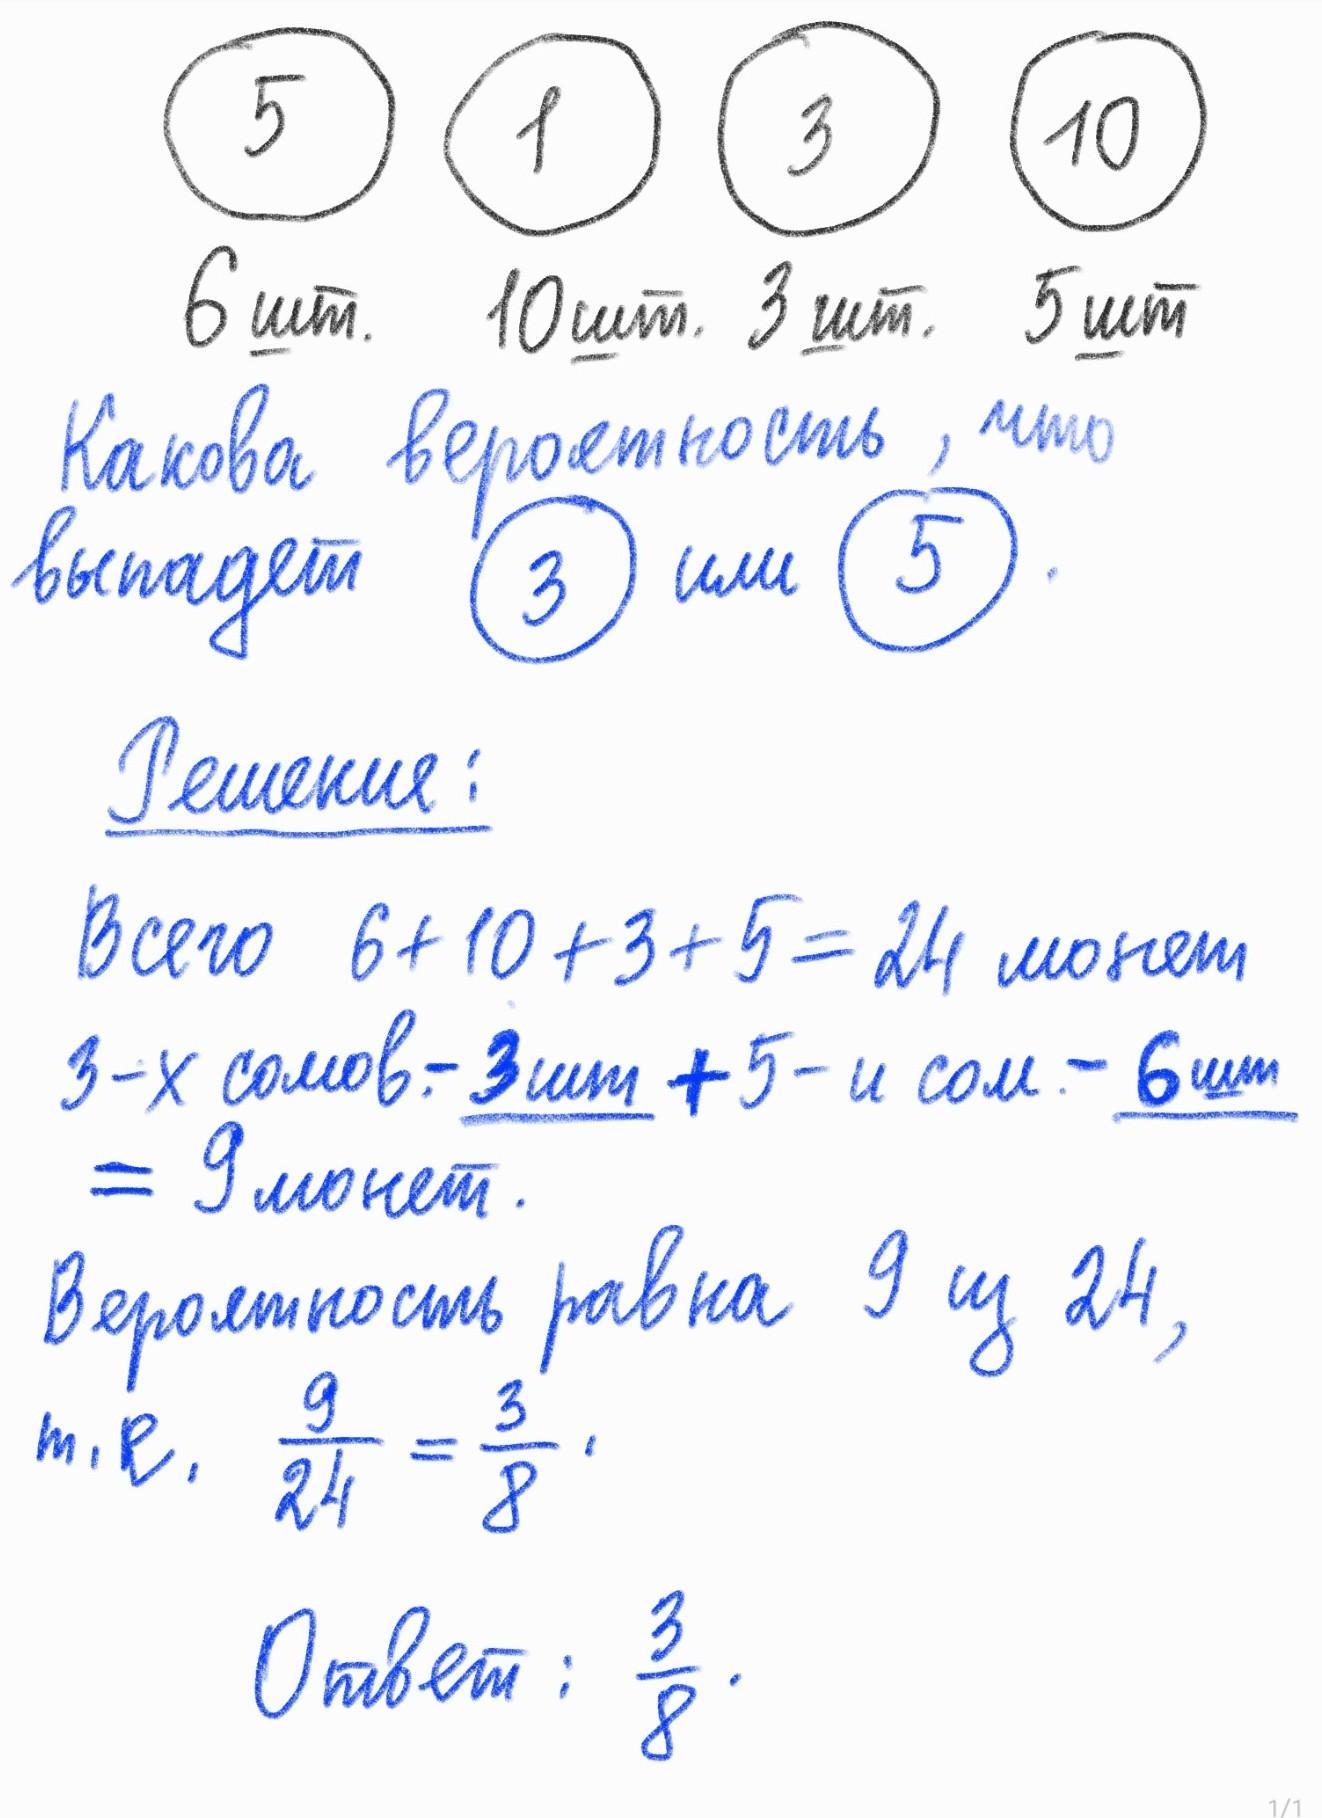 5 1 3 10
6 шт. 10 шт. 3 шт. 5 шт
Какова вероятность, что
выпадет 3 или 5.
Решение:
Всего 6+10+3+5=24 монет
3-х сомов.- 3 шт + 5-и сом.- 6 шт
= 9 монет.
Вероятность равна 9 из 24,
т.е. 9/24 = 3/8.
Ответ: 3/8.
1/1